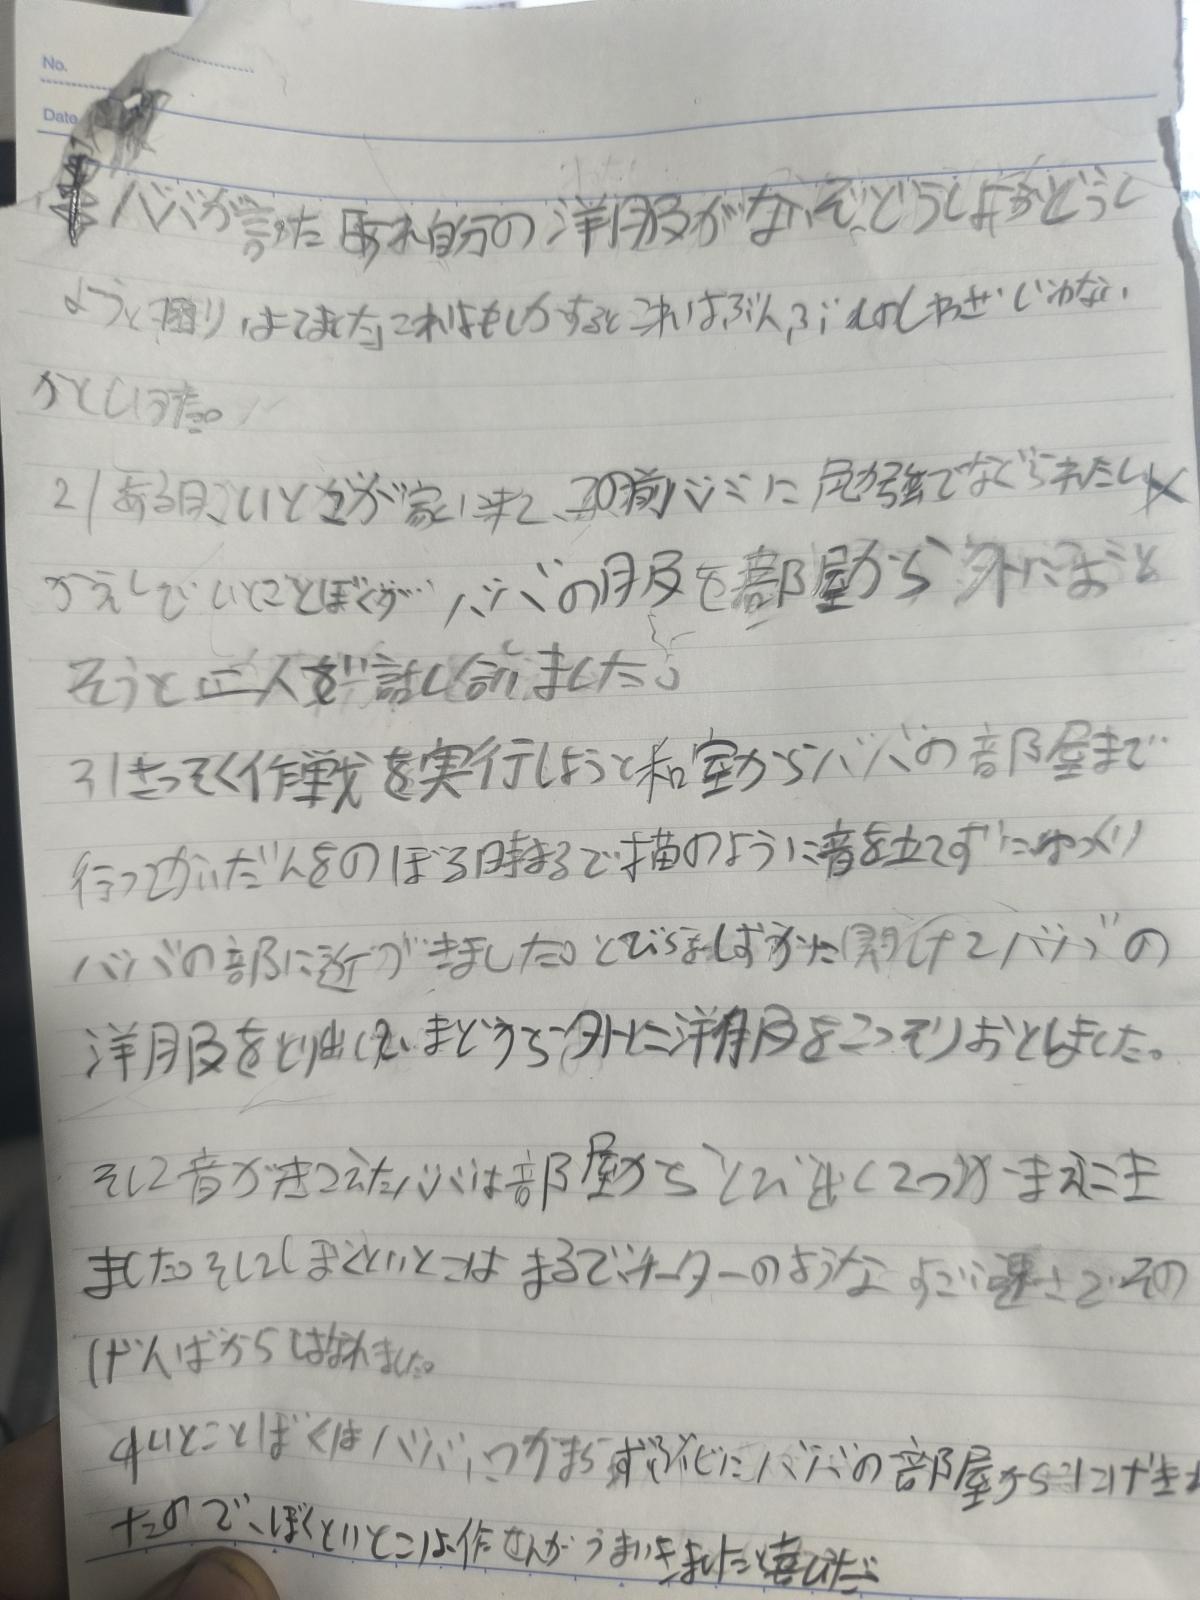 No.
Date
ババが言った「あれ自分の洋服がないぞ、どうしよかどうし
ようと困りはてました」これはもしかするとこれはぶんぶんのしわざじゃない
かとしりました。
2/ある日、いとこが家に来て、この前ババに勉強でなぐられたしか
かえしでいとことぼくがババの服を部屋から外におと
そうと二人で話し合いました。
3/さっそく作戦を実行しようと和室からババの部屋まで
行ってかいだんをのぼる時まるで猫のように音を立てずにゆっくり
ババの部に近づきました。とびらをしずかに開けてババの
洋服をとり出しまどから外に洋服をこっそりおとしました。
そして音がきこえたババは部屋からとび出してつかまえにき
ました。そしてぼくといとこはまるでチーターのようなすごい速さでその
げんばからはなれました。
4/いとことぼくはババにつかまらずぶじにババの部屋からにげきれ
たので、ぼくといとこは作せんがうまいきましたと喜びました